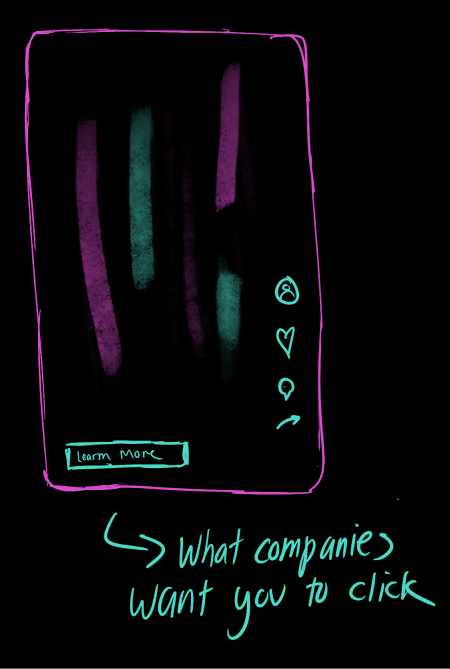 Learn More
What companies
want you to click